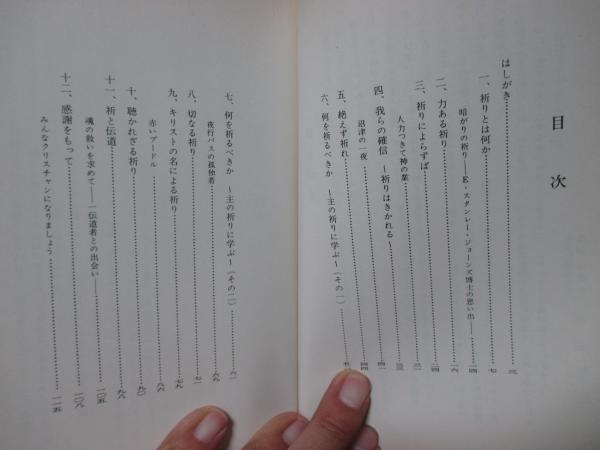 目次
はしがき……三
一、祈りとは何か……七
暗がりの祈り——E・スタンレー・ジョーンズ博士の思い出——……一四
二、力ある祈り……一六
三、祈りによらずば……二四
人力つきて神の業……三一
四、我らの確信 〜祈りはきかれる〜……三三
沼津の一夜……四一
五、絶えず祈れ……四四
六、何を祈るべきか 〜主の祈りに学ぶ〜（その一）……五
七、何を祈るべきか 〜主の祈りに学ぶ〜（その二）……六一
夜行バスの孤独者……六九
八、切なる祈り……七一
九、キリストの名による祈り……七九
赤いプードル……八六
十、聴かれざる祈り……九〇
十一、祈と伝道……九八
魂の救いを求めて——一伝道者との出会い——……一〇五
十二、感謝をもって……一〇八
みんなクリスチャンになりましょう……一一五